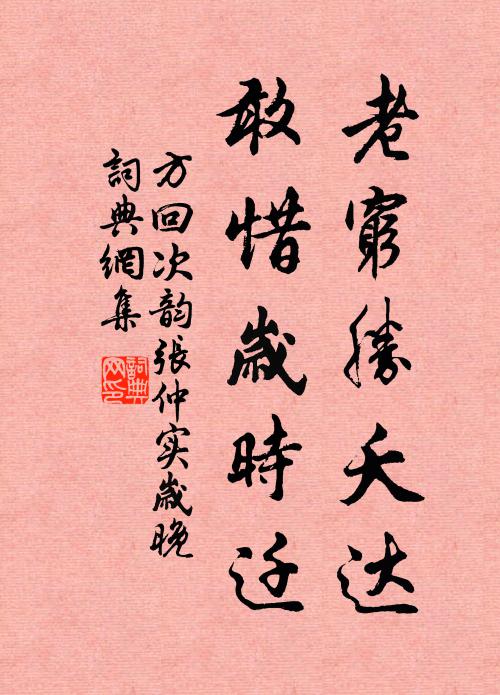 老窮勝夭达
敢惜歲時迁
方回次韵張仲实歲晚
詞典網集
詞典网印